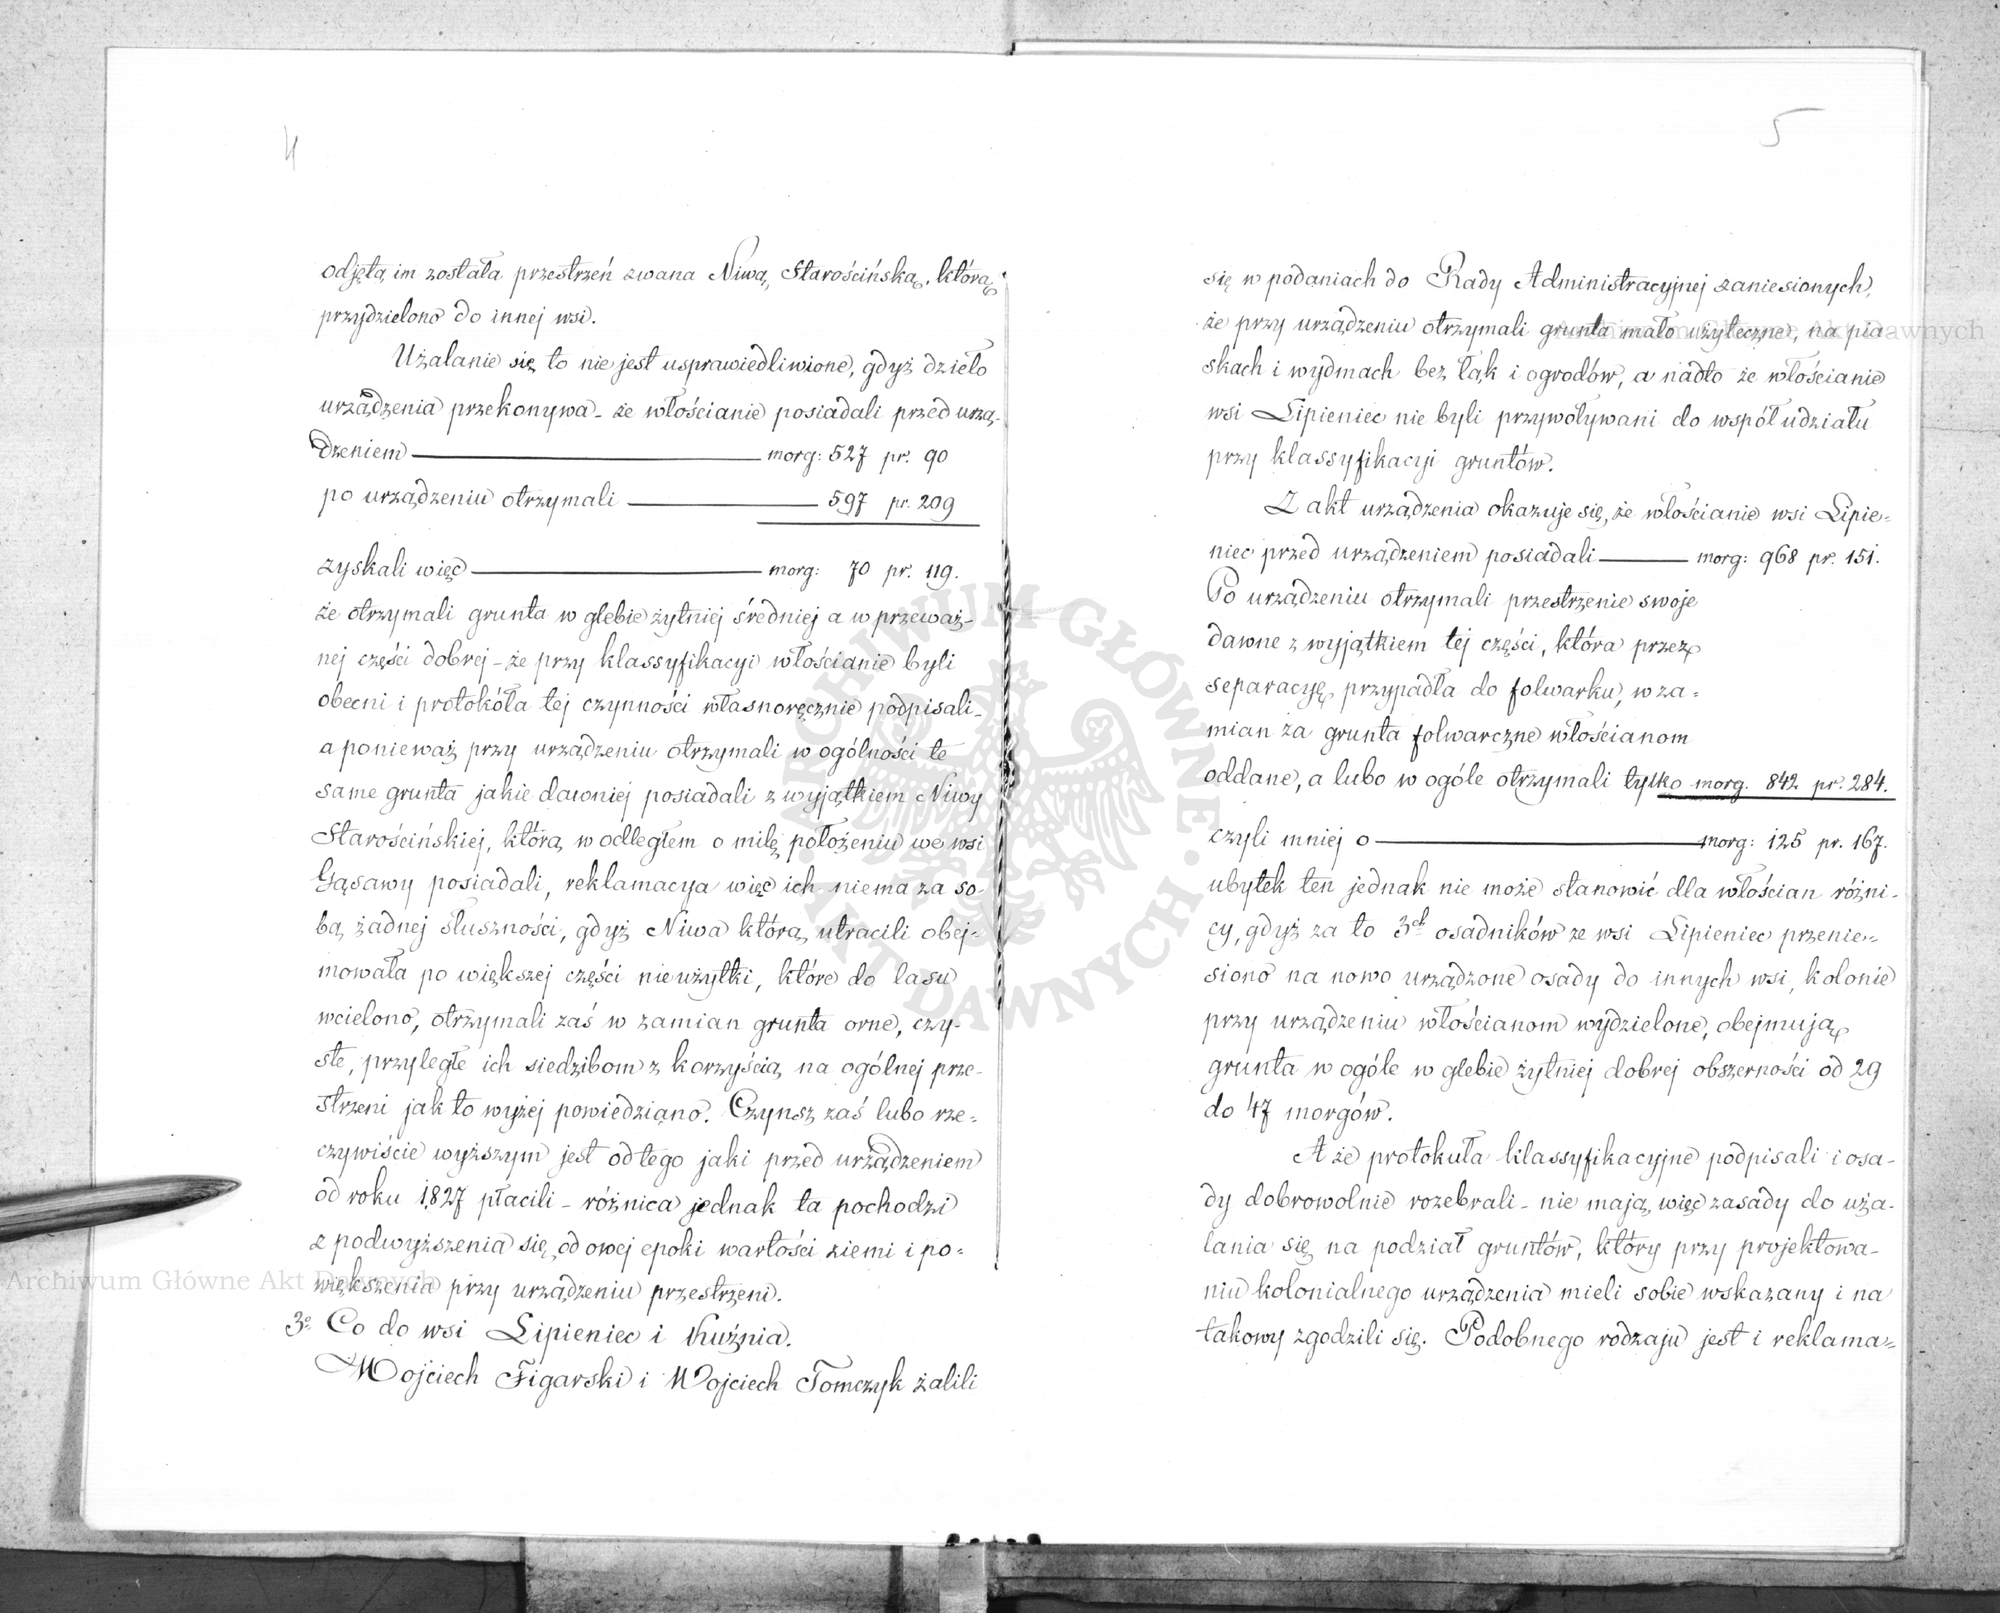 4
odjętą im została przestrzeń zwana Niwą Starościńską, którą
przydzielono do innej wsi.
Użalanie się to nie jest usprawiedliwione, gdyż dzieło
urządzenia przekonywa – że włościanie posiadali przed urzą-
dzeniem morg: 527 pr. 90
po urządzeniu otrzymali 597 pr. 209
zyskali więc morg: 70 pr. 119.
że otrzymali grunta w glebie żytniej średniej a w przeważ-
nej części dobrej – że przy klassyfikacyi włościanie byli
obecni i protokóła tej czynności własnoręcznie podpisali –
a ponieważ przy urządzeniu otrzymali w ogólności te
same grunta jakie dawniej posiadali z wyjątkiem Niwy
Starościńskiej, którą w odległem o milę położeniu we wsi
Gąsawy posiadali, reklamacya więc ich niema za so-
bą żadnej słuszności, gdyż Niwa którą utracili obej-
mowała po większej części nieużytki, które do lasu
wcielono, otrzymali zaś w zamian grunta orne, czy-
ste, przyległe ich siedzibom z korzyścią na ogólnej prze-
strzeni jak to wyżej powiedziano. Czynsz zaś lubo rze-
czywiście wyższym jest od tego jaki przed urządzeniem
od roku 1827 płacili – różnica jednak ta pochodzi
z podwyższenia się od owej epoki wartości ziemi i po-
większenia przy urządzeniu przestrzeni.
3o. Co do wsi Lipieniec i Kuźnia.
Wojciech Figarski i Wojciech Tomczyk żalili
5
się w podaniach do Rady Administracyjnej zaniesionych,
że przy urządzeniu otrzymali grunta mało użyteczne, na pia
skach i wydmach bez łąk i ogrodów, a nadto że włościanie
wsi Lipieniec nie byli przywoływani do współudziału
przy klassyfikacyi gruntów.
Z akt urządzenia okazuje się, że włościanie wsi Lipie-
niec przed urządzeniem posiadali morg: 968 pr. 151.
Po urządzeniu otrzymali przestrzenie swoje
dawne z wyjątkiem tej części, która przez
separacyę przypadła do folwarku, w za-
mian za grunta folwarczne włościanom
oddane, a lubo w ogóle otrzymali tylko morg. 842 pr. 284.
czyli mniej o morg: 125 pr. 167.
ubytek ten jednak nie może stanowić dla włościan różni-
cy, gdyż za to 3ch osadników ze wsi Lipieniec przenie-
siono na nowo urządzone osady do innych wsi, kolonie
przy urządzeniu włościanom wydzielone, obejmują
grunta w ogóle w glebie żytniej dobrej obszerności od 29
do 47 morgów.
A że protokuła klassyfikacyjne podpisali i osa-
dy dobrowolnie rozebrali – nie mają więc zasady do uża-
lania się na podział gruntów, który przy projektowa-
niu kolonialnego urządzenia mieli sobie wskazany i na
takowy zgodzili się. Podobnego rodzaju jest i reklama-
Archiwum Główne Akt Dawnych
Archiwum Główne Akt Dawnych
ARCHIWUM GŁÓWNE · AKT DAWNYCH ·